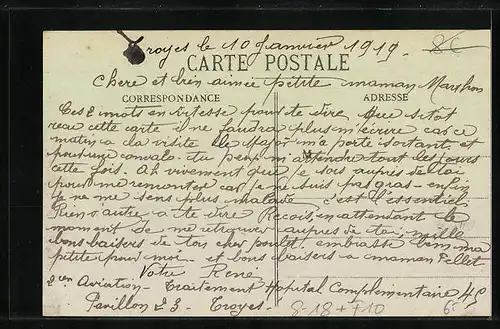 Troyes le 10 Janvier 1919.
CARTE POSTALE
chere et bien aimée petite maman
CORRESPONDANCE
ADRESSE
Ces 2 mots en vitesse pour te dire que sitot
recu cette carte il ne faudra plus m'écrire car ce
matin a la visite le Major m'a porté sortant, et
pour une convalo. tu peux m'attendre tout les jours
cette fois. Ah vivement que je sois aupres de toi
pour me remonter car je ne suis pas gras - enfin
je ne me sens plus malade c'est l'essentiel
Rien d'autre a te dire Recois en attendant le
moment de me retrouver aupres de toi, mille
bons baisers de ton cher poulet. embrasse bien ma
ptite pour moi - et bons baisers a maman Pellet
Votre René
2en Aviation - Traitement Hopital Complimentaire 45
Pavillon 23 - Troyes.
8-18+710